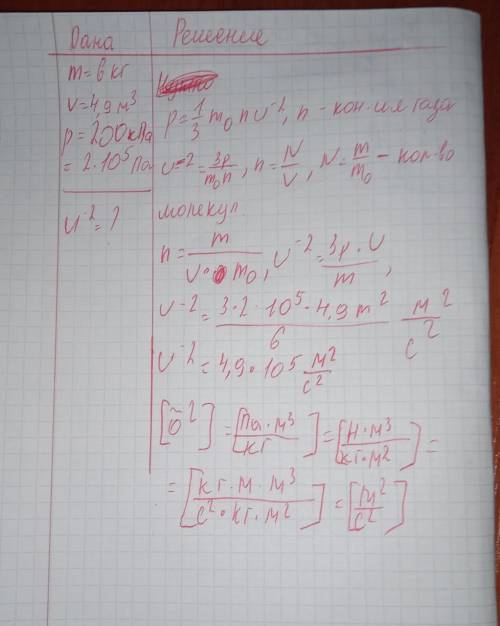 Дана Решение
m = 6 кг
V = 4,9 м³
p = 200 кПа
= 2·10⁵ Па
υ⁻² = ?
p = 1/3 m₀ n υ⁻², n - кон-ия газа
υ⁻² = 3p/m₀n, n = N/V, N = m/m₀ - кол-во
молекул
n = m/V·m₀, υ⁻² = 3p·V/m,
υ⁻² = 3·2·10⁵·4,9 m²/6 м²/с²
υ⁻² = 4,9·10⁵ м²/с²
[ῡ²] = [Па·м³/кг] = [Н·м³/кг·м²] =
= [кг·м·м³/с²·кг·м²] = [м²/с²]